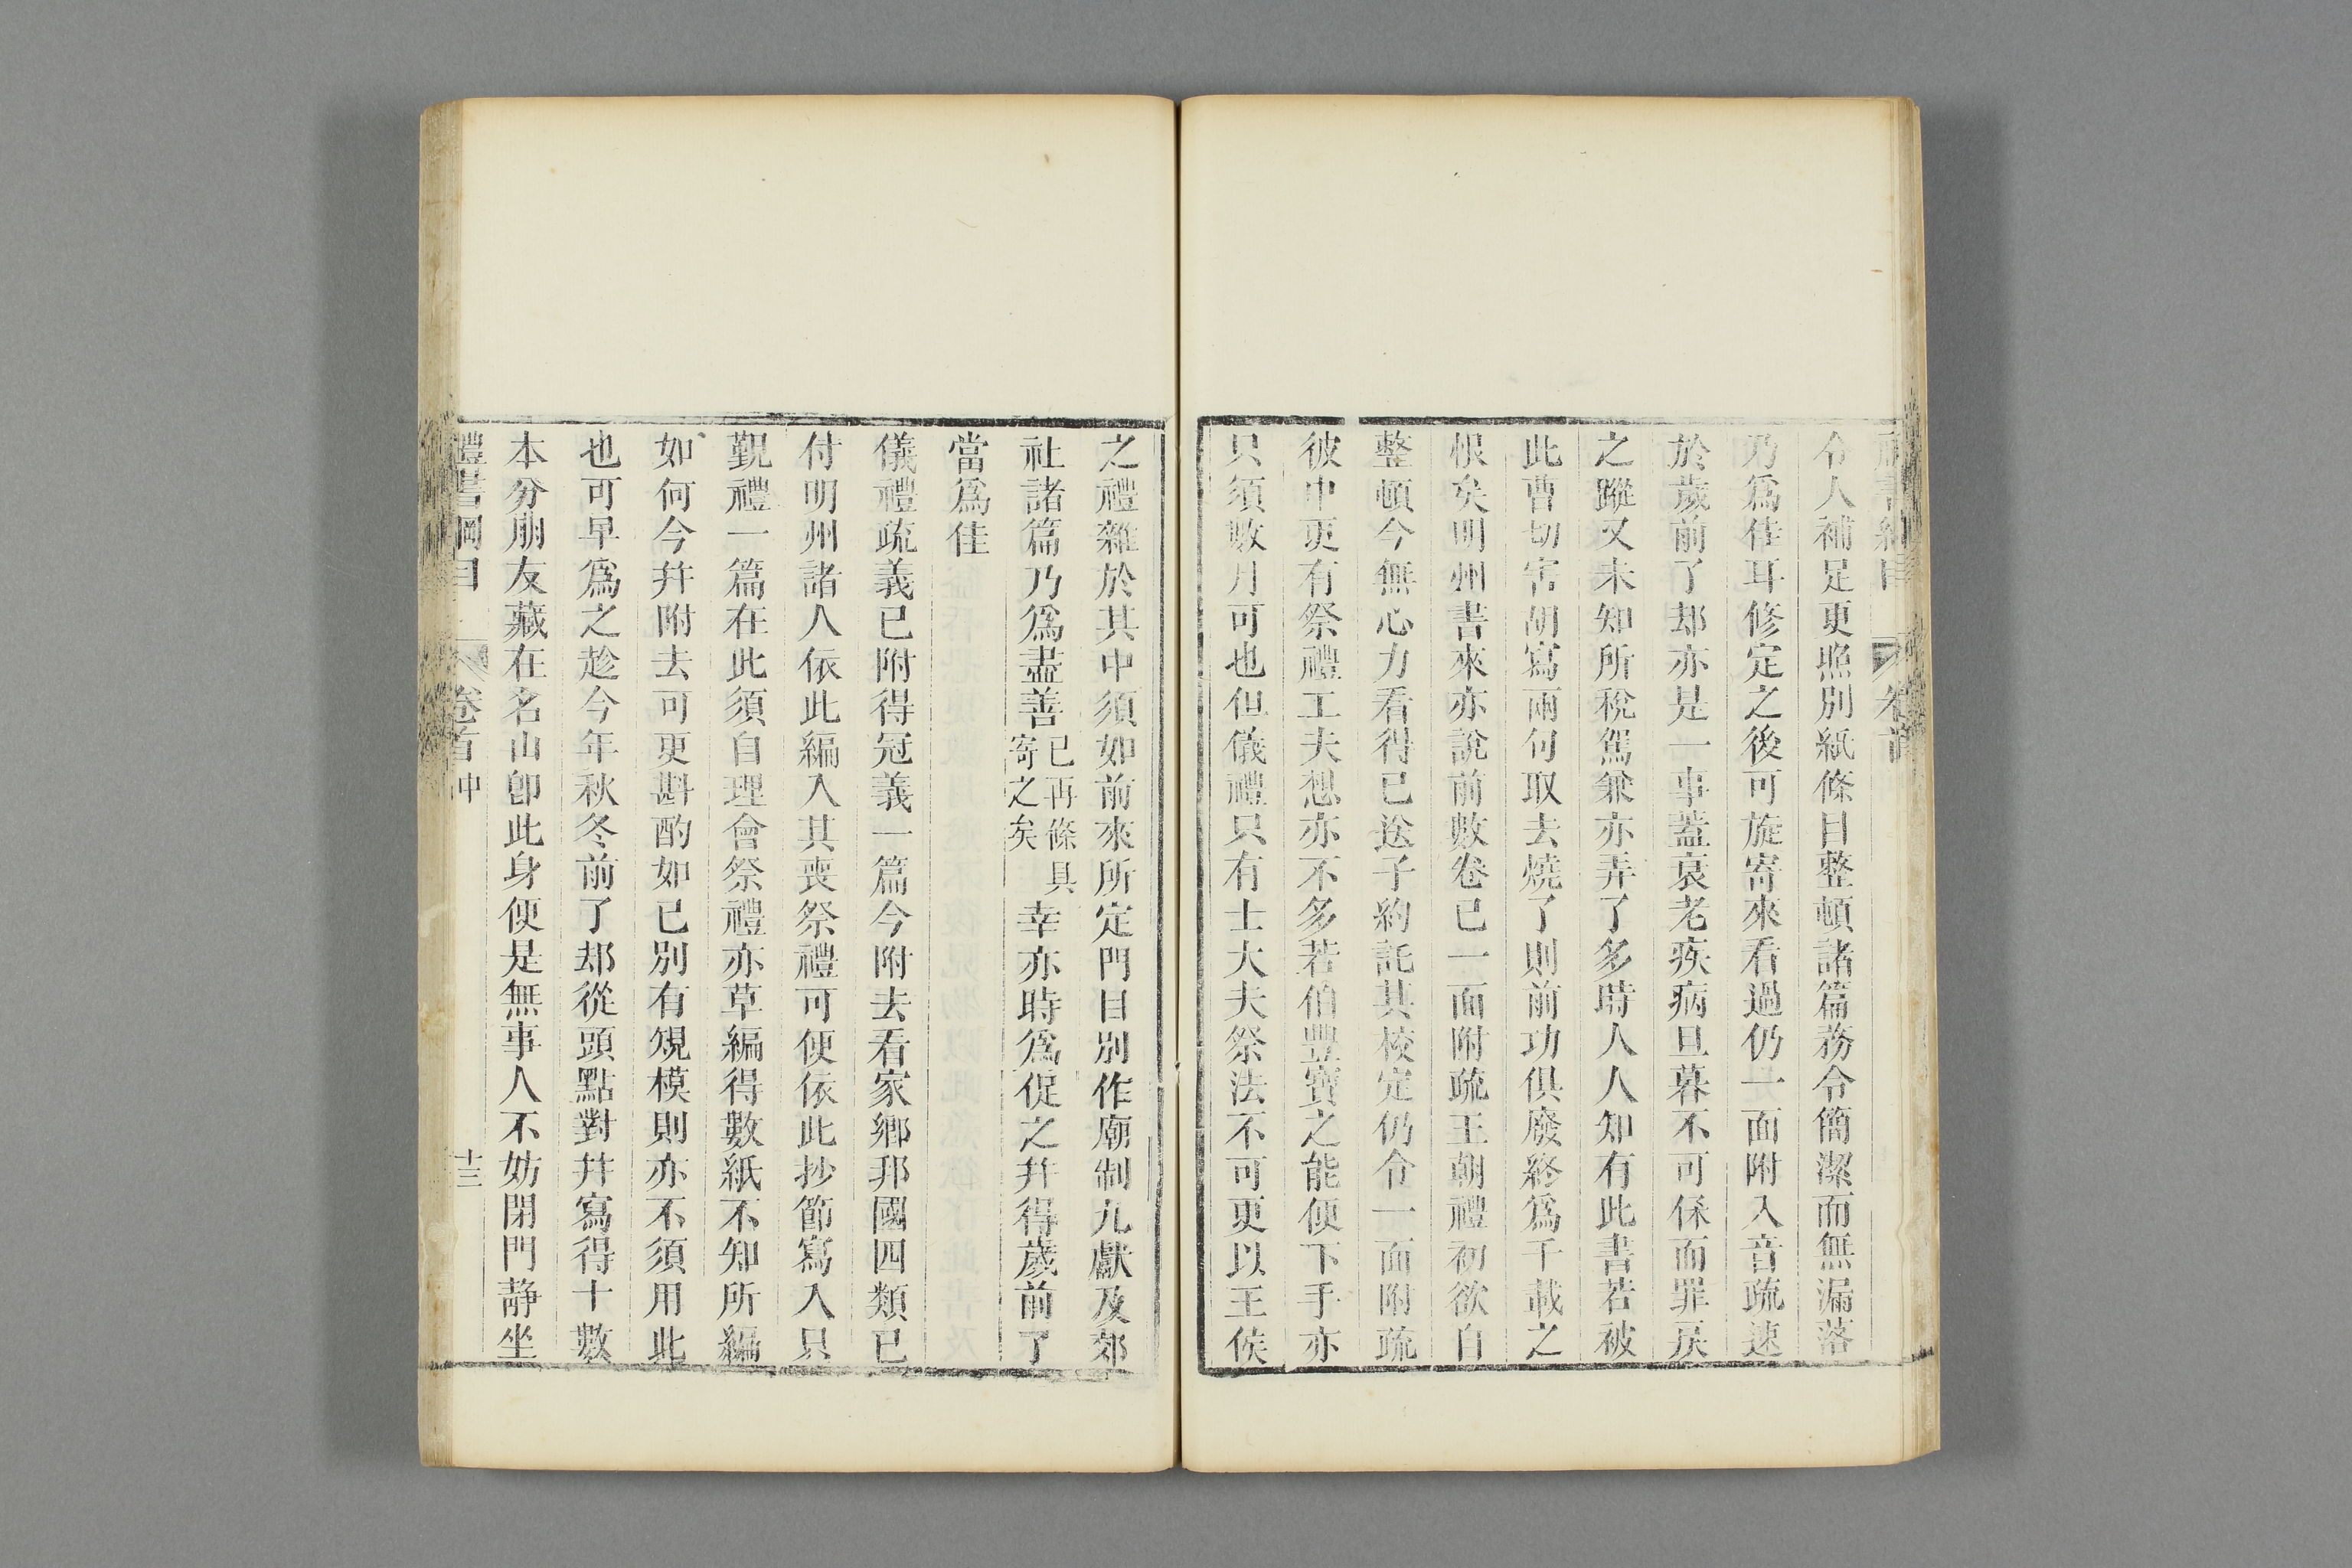 令人補足更照別紙條目整頓諸篇務令簡潔而無漏落
乃爲佳耳修定之後可旋寄來看過仍一面附入音疏速
於歲前了却亦是一事蓋衰老疾病旦暮不可保而罪戾
之蹤又未知所稅駕兼亦弄了多時人人知有此書若被
此曹切害胡寫兩句取去燒了則前功俱廢終爲千載之
恨矣明州書來亦說前數卷已一面附疏王朝禮初欲自
整頓今無心力看得已送子約託其校定仍令一面附疏
彼中更有祭禮工夫想亦不多若伯豐寶之能便下手亦
只須數月可也但儀禮只有士大夫祭法不可更以王侯
之禮雜於其中須如前來所定門目別作廟制九獻及郊
社諸篇乃爲盡善已再條具寄之矣幸亦時爲促之幷得歲前了
當爲佳
儀禮疏義已附得冠義一篇今附去看家鄉邦國四類已
付明州諸人依此編入其喪祭禮可便依此抄節寫入只
覲禮一篇在此須自理會祭禮亦草編得數紙不知所編
如何今幷附去可更斟酌如已別有規模則亦不須用此
也可早爲之趁今年秋冬前了却從頭點對幷寫得十數
本分朋友藏在名山卽此身便是無事人不妨閉門靜坐
禮書綱目 卷首中 十三